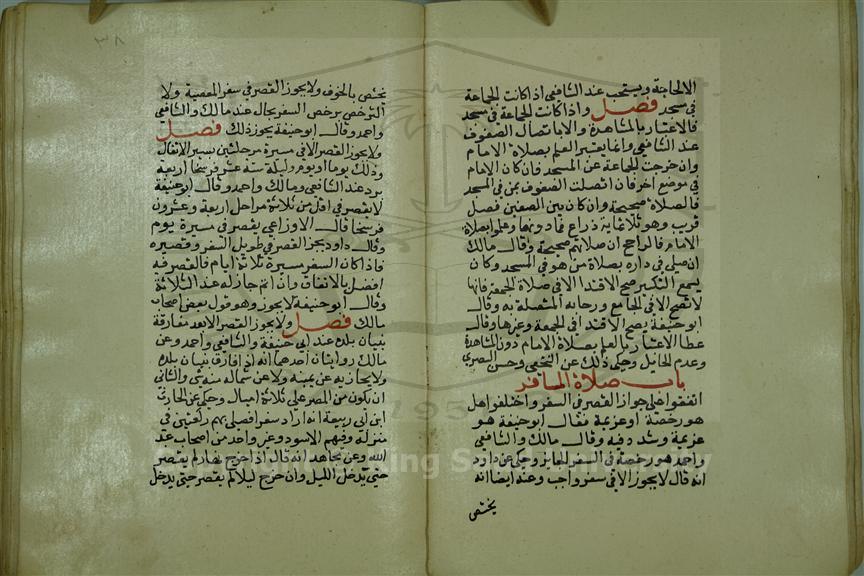 الالحاجة ويستحب عند الشافعي اذا كانت الجماعة
في مسجد فصل واذا كانت الجماعة في مسجد
فالاعتبار بالمشاهدة والا باتصال الصفوف
عند الشافعي وانما يعتبر العلم بصلاة الامام
وان خرجت الجماعة عن المسجد فان كان الامام
في موضع اخر فان اتصلت الصفوف بمن في المسجد
فالصلاة صحيحة وان كان بين الصفين فصل
قريب وهو ثلاثماية ذراع فما دونها وعلموا بصلاة
الامام فالراجح ان صلاتهم صحيحة وقال مالك
ان صلى في داره بصلاة من هو في المسجد وكان
يسمع التكبير صح الاقتدا الا في صلاة الجمعة فانها
لا تصح الا في الجامع ورحابه المتصلة به وقال
ابو حنيفة يصح الاقتدا في الجمعة وغيرها وقال
عطا الاعتبار بالعلم بصلاة الامام دون المشاهدة
وعدم الحايل وحكي ذلك عن النخعي وحسن البصري
باب صلاة المسافر
اتفقوا على جواز القصر في السفر واختلفوا هل
هو رخصة او عزيمة فقال ابو حنيفة هو
عزيمة وشدد فيه وقال مالك والشافعي
واحمد هو رخصة في السفر الجايز وحكي عن داود
انه قال لا يجوز الا في سفر واجب وعنه ايضا انه
يختص
٣٨
يختص بالخوف ولا يجوز القصر في سفر المعصية ولا
الترخص برخص السفر بحال عند مالك والشافعي
واحمد وقال ابو حنيفة يجوز ذلك فصل
ولا يجوز القصر الا في مسيرة مرحلتين بسير الاثقال
وذلك يوما او يوم وليلة ستة عشر فرسخا اربعة
برد عند الشافعي ومالك واحمد وقال ابو حنيفة
لا يقصر في اقل من ثلاثة مراحل اربعة وعشرون
فرسخا قال الاوزاعي يقصر في مسيرة يوم
وقال داود يجز القصر في طويل السفر وقصيره
فاذا كان السفر مسيرة ثلاثة ايام فالقصر فيه
افضل بالاتفاق وان اتم جاز له عند الثلاثة
وقال ابو حنيفة لا يجوز وهو قول بعض اصحاب
مالك فصل ولا يجوز القصر الا بعد مفارقة
بنيان بلده عند ابي حنيفة والشافعي واحمد وعن
مالك روايتان احدهما انه اذا فارق بنيان بلده
ولا يحازيه عن يمينه ولا عن شماله منه شي والثاني
ان يكون من المصر على ثلاثة اميال وحكي عن الحارث
ابن ابي ربيعة انه اراد سفرا فصلى بهم ركعتين في
منزله وفيهم الاسود وغير واحد من اصحاب عبد
الله وعن مجاهد انه قال اذا خرج نهارا لم يقصر
حتى يدخل الليل وان خرج ليلا لم يقصر حتى يدخل